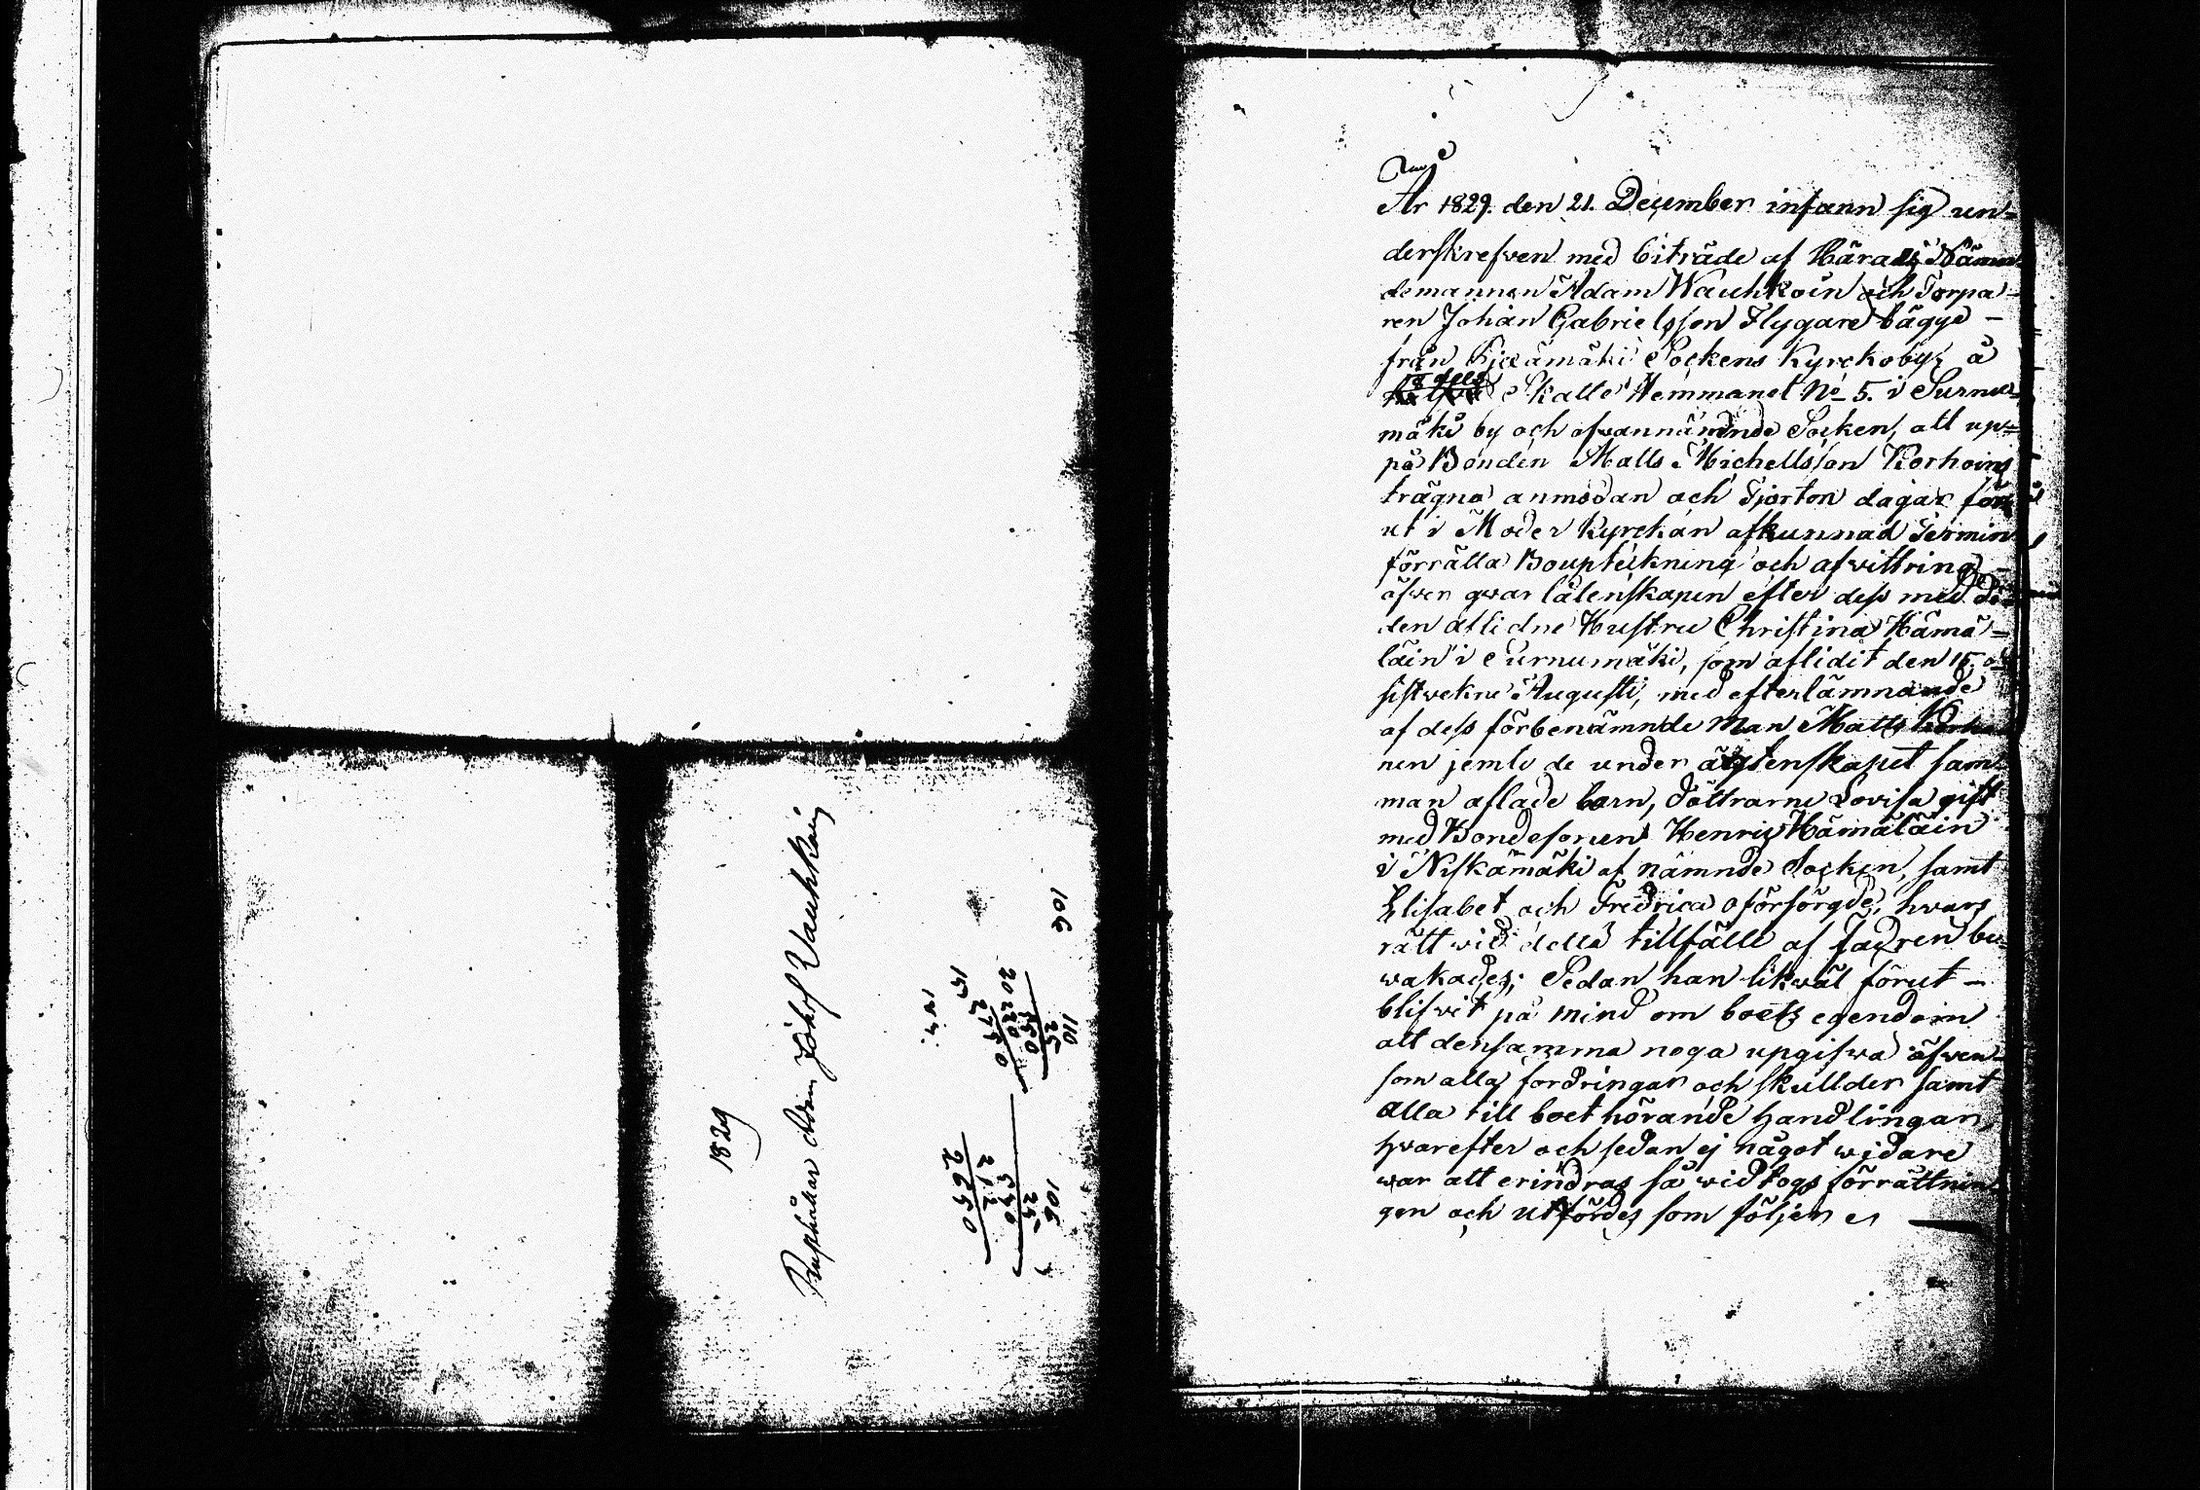 1829
106
110
25
150
20 220
15 275
106
25
530
212
2650
År 1829. den 21. December infann sig un=
derskrefven med biträde af Härads Näm
demannen Adam Wauhkoin och Torpa=
ren Johan Gabrielsson Flygare bägge –
från Sockens Kyrckoby, å
Skatte Hemmanet No 5. i Surnu=
mäki by och ofvannämnde Socken, att up=
på Bonden Matts Michellsson Korhoins
trägna anmodan och Fjorton dagar för
ut i Moder Kyrckan afkunnad Termin
förrätta Bouptekning och afvittring –
öfver qvarlåtenskapen efter dess med
den aflidne Hustru Christina Hämä=
läin i Surnumäki, som aflidit den 15
sistvekne Augusti, med efterlämnande
af dess förbenämnde Man Matts Korho
nen jemte de under ägtenskapet sam=
man aflade barn, döttrarne Lovisa gift
med Bondesonen Henric Hämäläin
i Niskamäki af nämnde Socken, samt
Elisabet och Fredrica oförsörgde, hvars
rätt wid detta tillfälle af fadren be=
wakades; Sedan han likväl förut –
blifvit på mind om boets egendom
att densamma noga upgifva äfven=
som alla fordringar och skullder samt
alla till boet hörande handlingar,
hvarefter och sedan ej något widare
war att erindras så widtogs förrättnin
gen och utfördes som följer